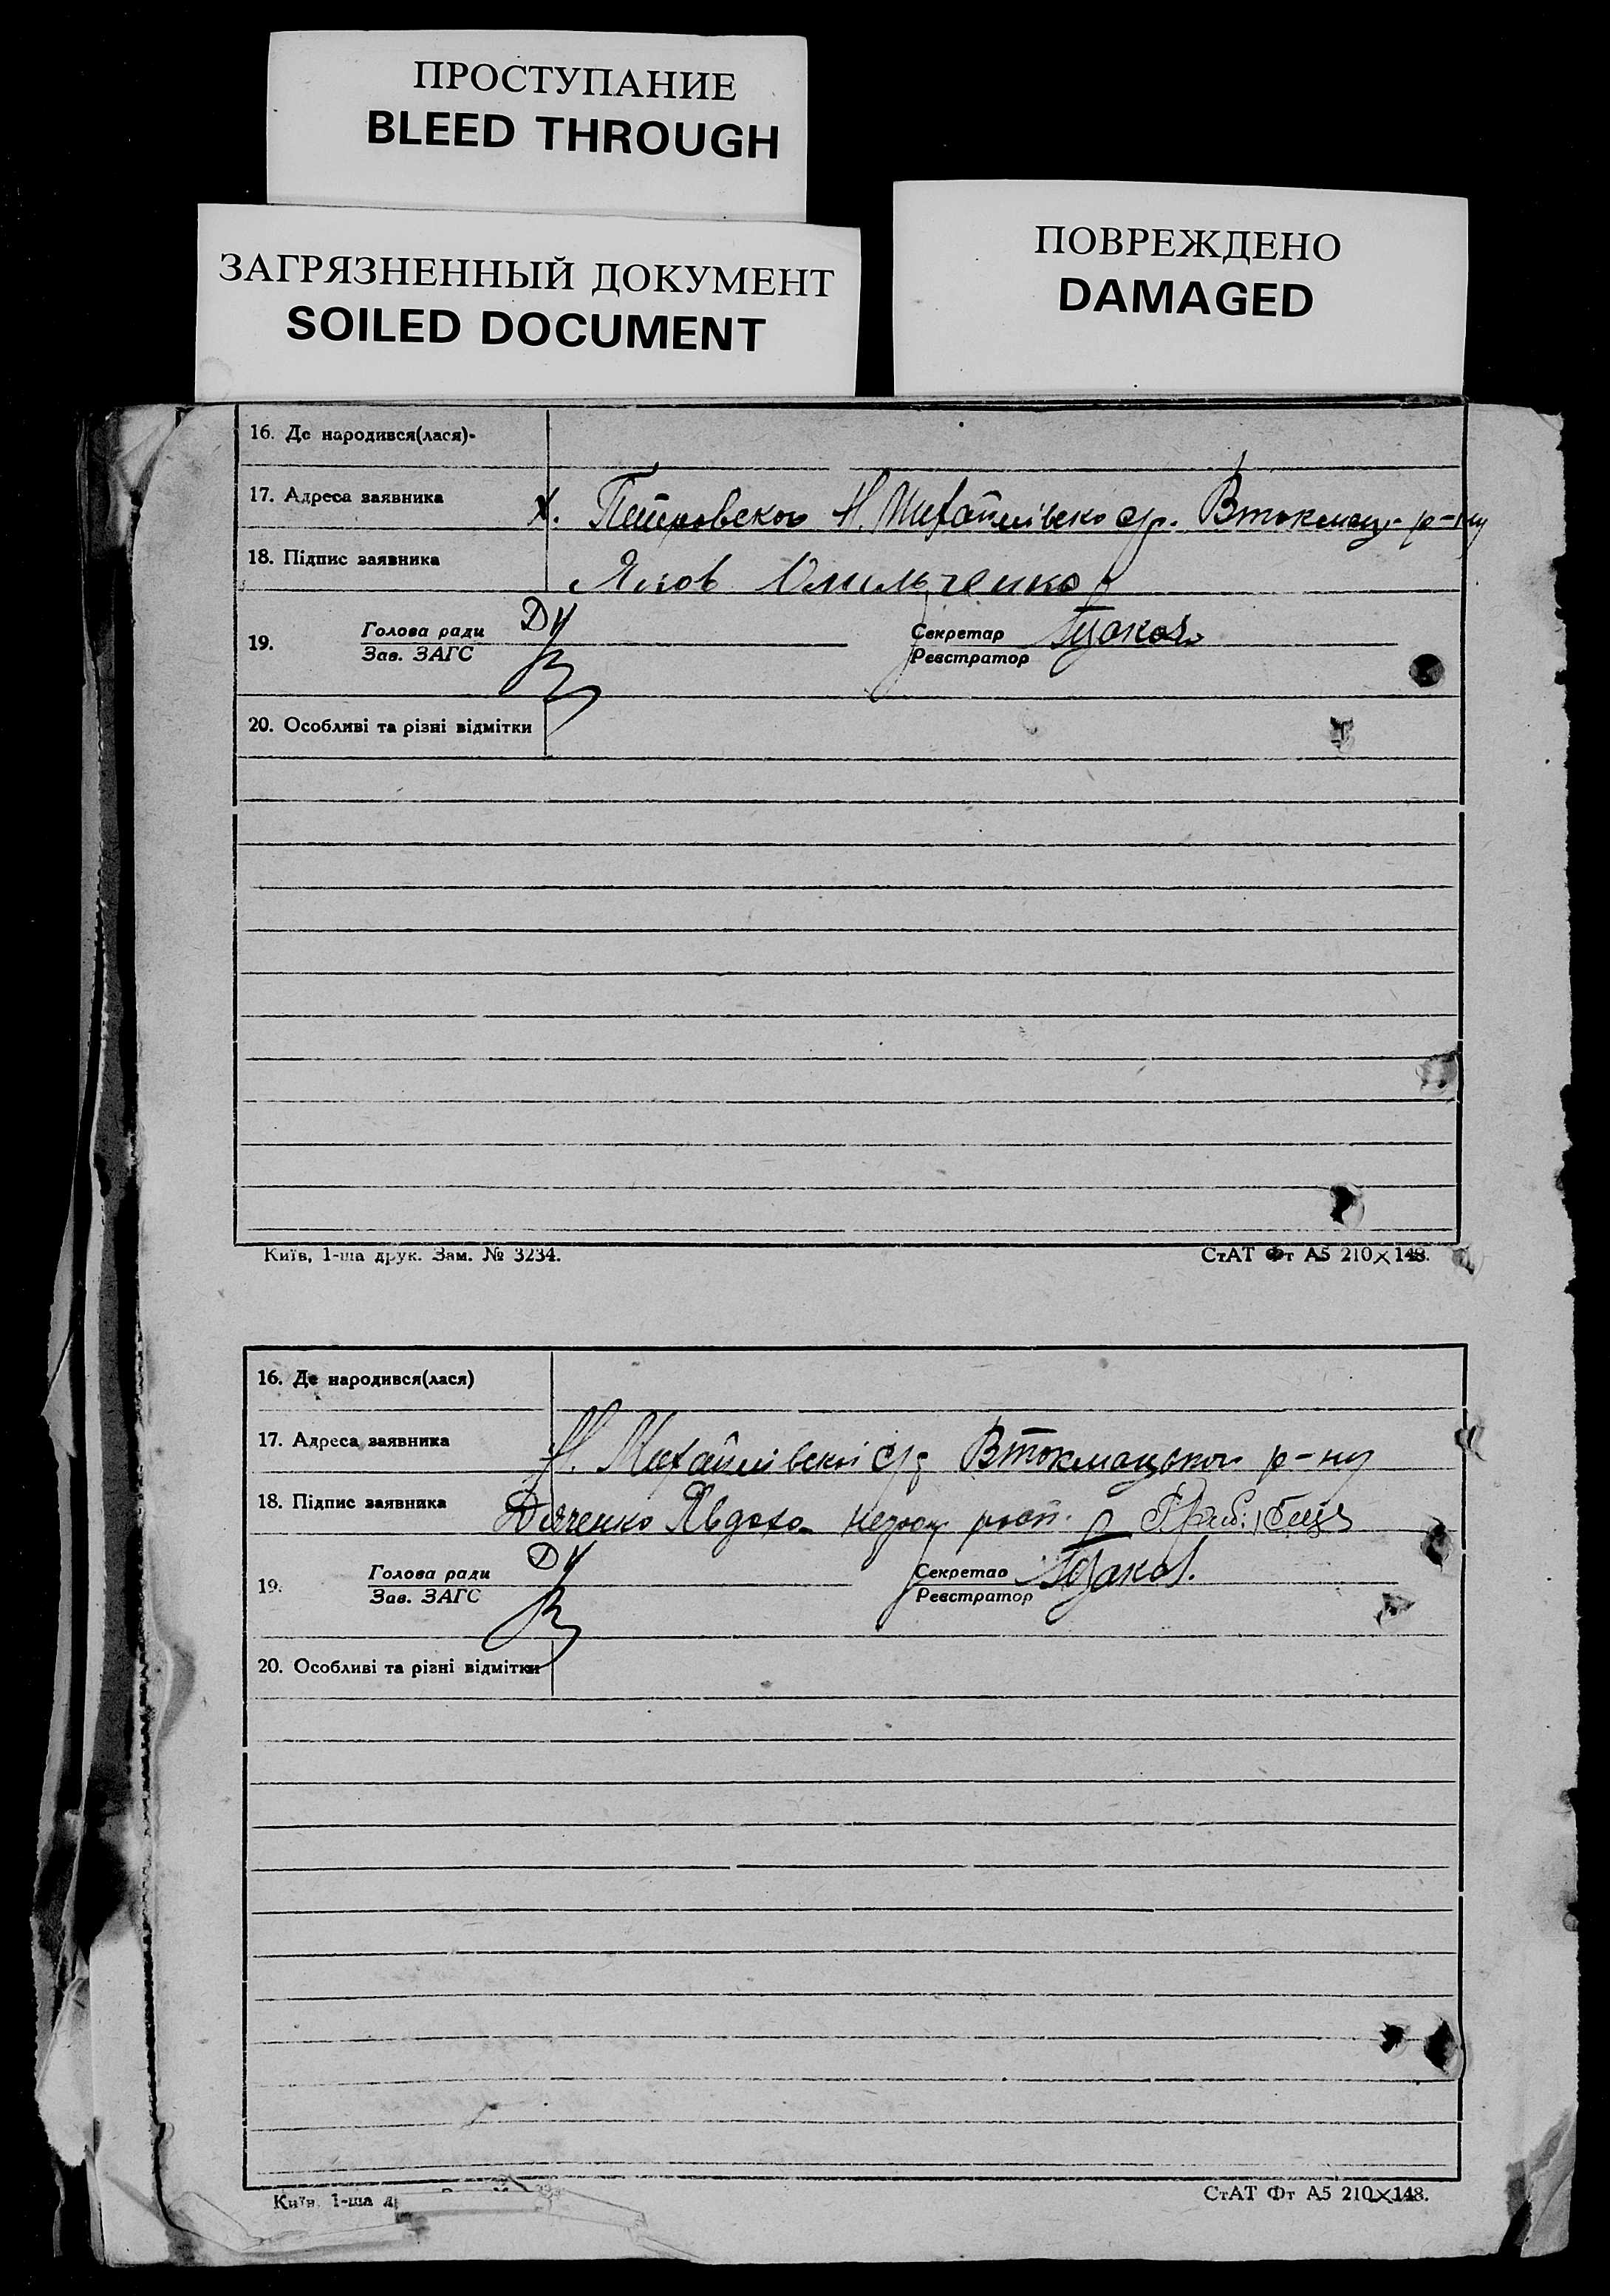 ПРОСТУПАНИЕ
BLEED THROUGH
ЗАГРЯЗНЕННЫЙ ДОКУМЕНТ
SOILED DOCUMENT
ПОВРЕЖДЕНО
DAMAGED
16. Де народився(лася)-
17. Адреса заявника х. Петровского Н. Михайлівсько с/р. Втокмац. р-ну
18. Підпис заявника Яков Омильченко
19. Голова ради Секретар
Зав. ЗАГС Реєстратор
20. Особливі та різні відмітки
Київ, 1-ша друк. Зам. № 3234. СтАТ Фт А5 210×148.
16. Де народився(лася)
17. Адреса заявника Н. Михайлівської с/р Втокмацького р-ну
18. Підпис заявника Дяченко Явдоха
19. Голова ради Секретар
Зав. ЗАГС Реєстратор
20. Особливі та різні відмітки
Київ, 1-ша СтАТ Фт А5 210×148.